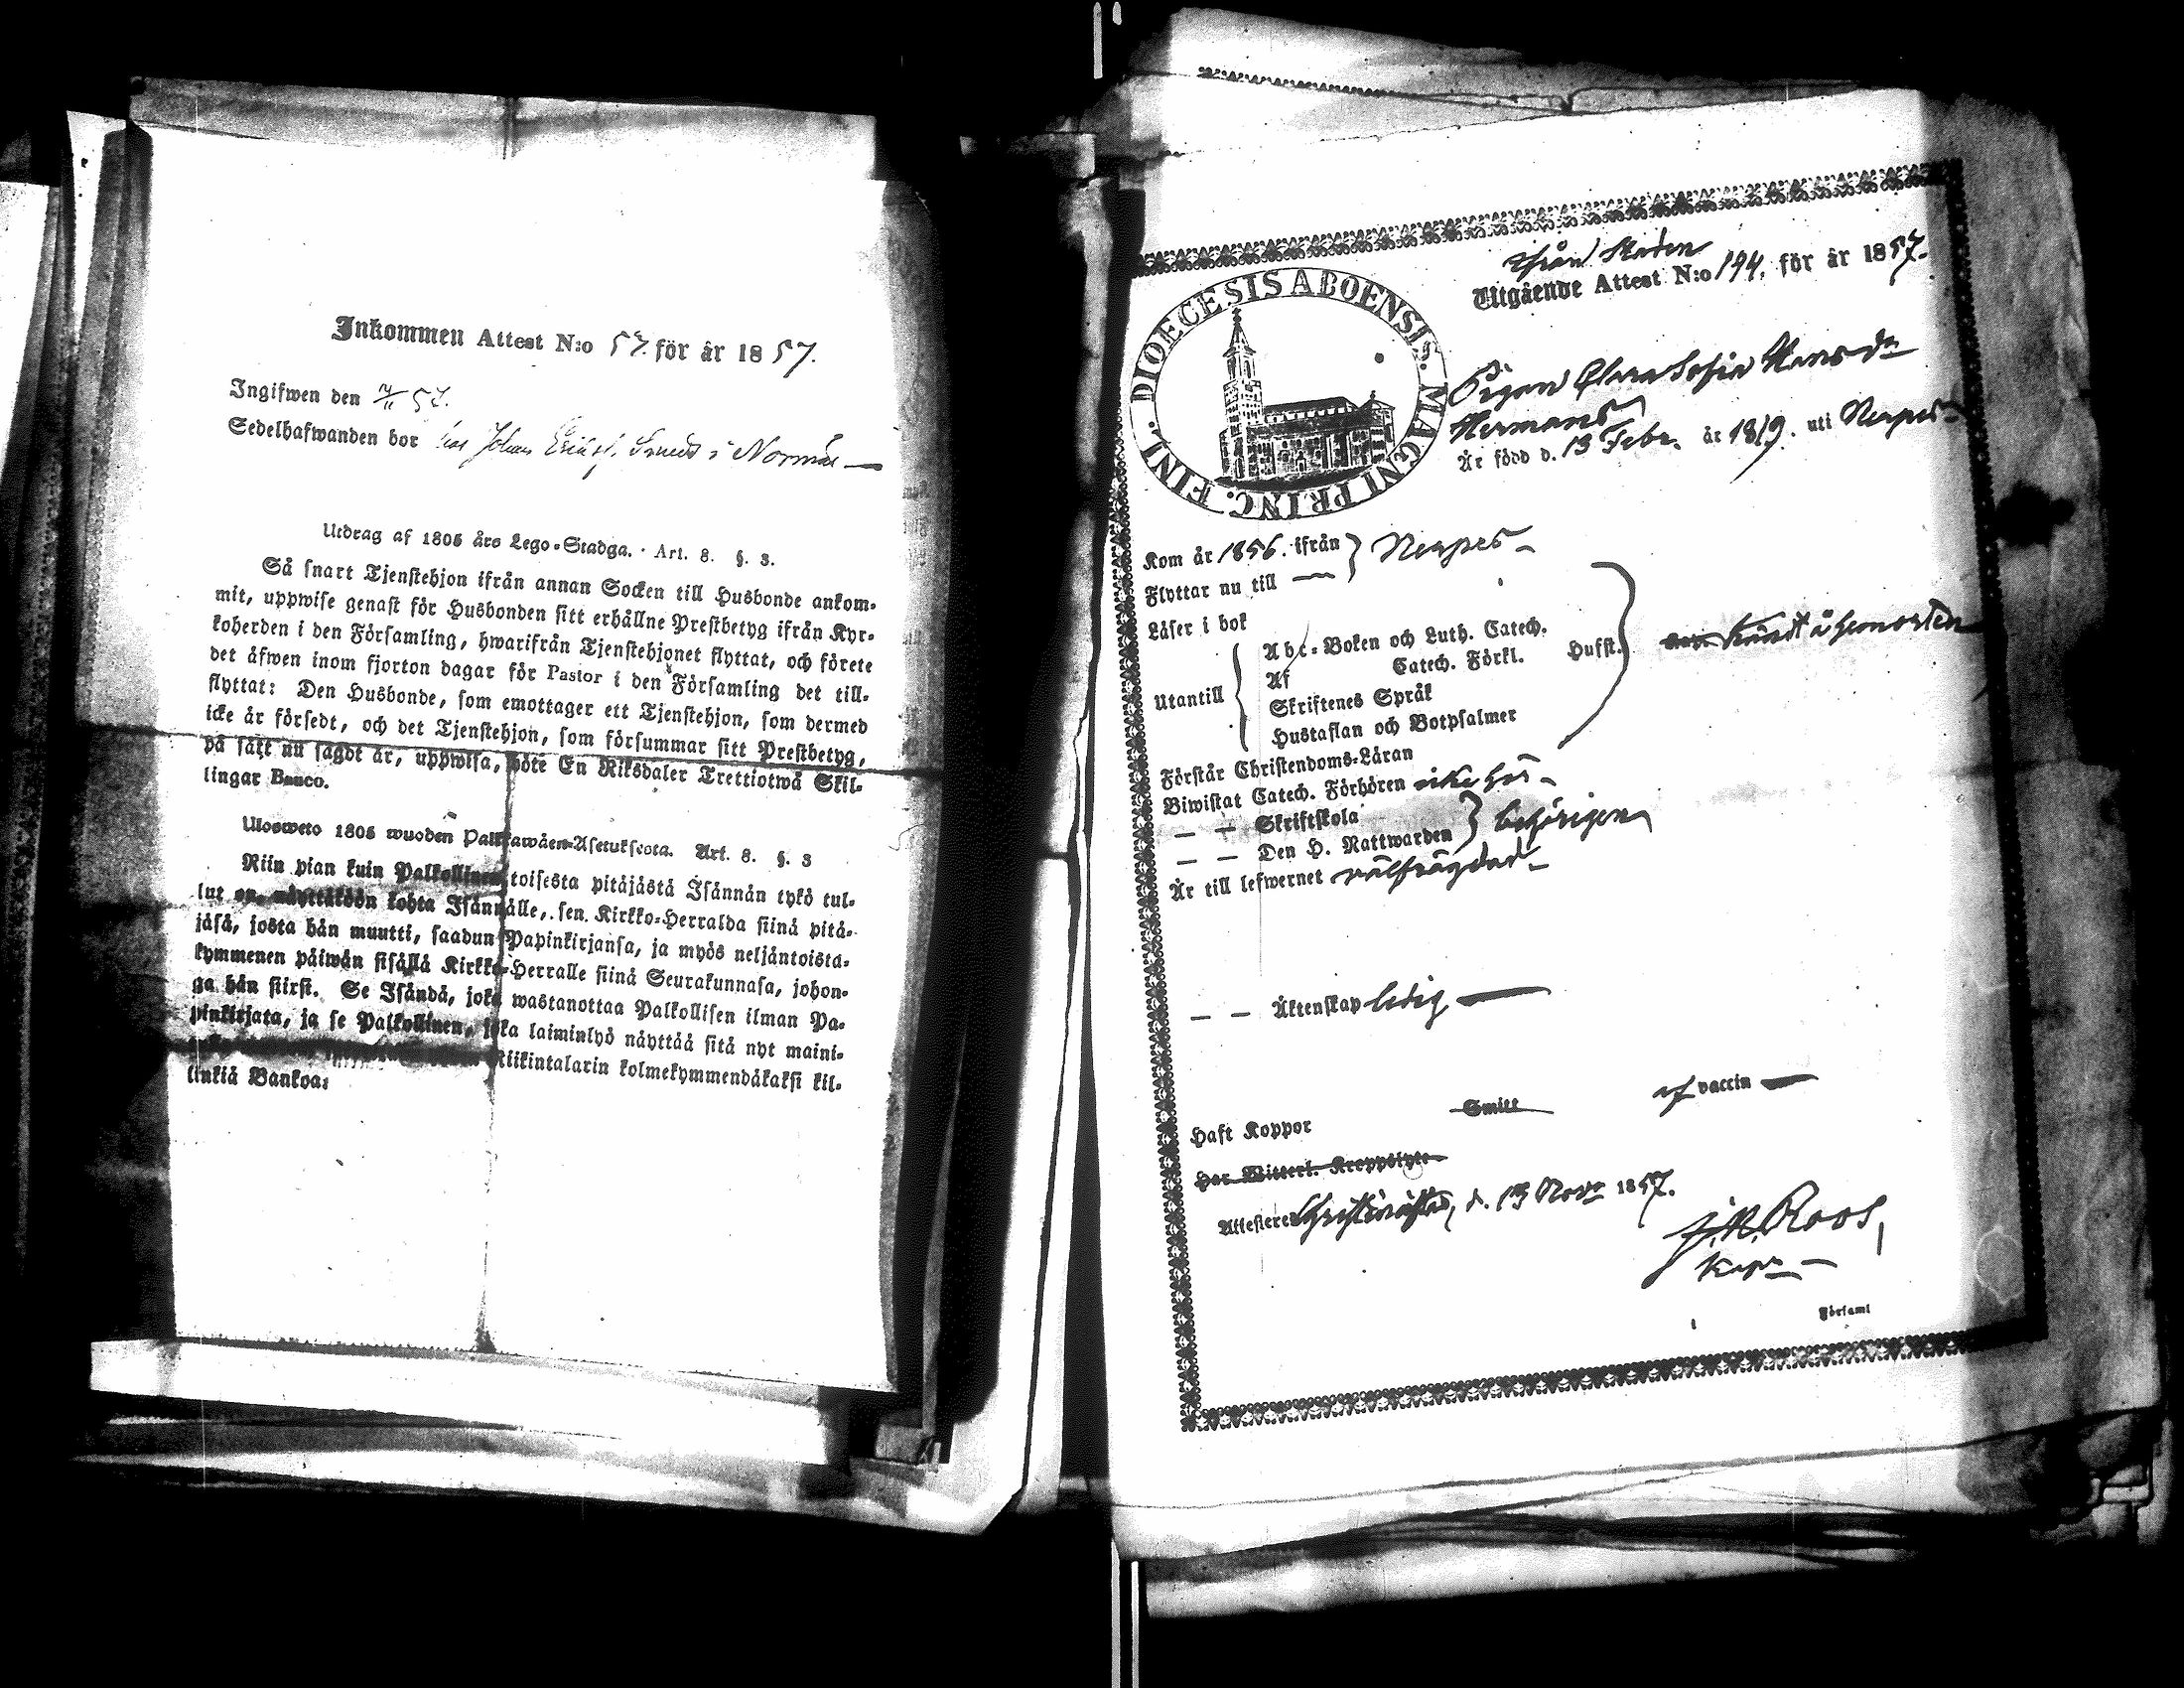 Inkommen Attest N:o 57. för år 1857.
Ingifwen den 57.
Sedelhafwanden bor hos Johan Eriksf. Smeds i Normäs
Utdrag af 1805 års Lego-Stadga. Art. 8. §. 3.
Så snart Tjenstehjon ifrån annan Socken till Husbonde ankom-
mit, uppwise genast för Husbonden sitt erhållne Prestbetyg ifrån Kyr-
koherden i den Församling, hwarifrån Tjenstehjonet flyttat, och förete
det äfwen inom fjorton dagar för Pastor i den Församling det till-
flyttat: Den Husbonde, som emottager ett Tjenstehjon, som dermed
icke är försedt, och det Tjenstehjon, som försummar sitt Prestbetyg,
på sätt nu sagdt är, uppwisa, böte En Riksdaler Trettiotwå Skil-
lingar Banco.
Ulosweto 1805 wuoden Palkkawäen-Asetuksesta. Art. 8. §. 3
Niin pian kuin Palkollinen toisesta pitäjästä Isännän tykö tul-
lut on, näyttäköön kohta Isännälle, sen Kirkko-Herralda siinä pitä-
jäsä, josta hän muutti, saadun Papinkirjansa, ja myös neljäntoista-
kymmenen päiwän sisällä Kirkko-Herralle siinä Seurakunnasa, johon-
ga hän siirsi. Se Isändä, joka wastanottaa Palkollisen ilman Pa-
pinkirjata, ja se Palkollinen, joka laiminlyö näyttää sitä nyt maini-
Riikintalarin kolmekymmendäkaksi kil-
linkiä Bankoa:
DIOECESIS ABOENSIS. MAGNI PRINC. FINL.
ifrån Staden
Utgående Attest N:o 194. för år 1857.
Pigan Clara Sofia Hansdr
Hermans
Är född d. 13 Febr. år 1819. uti Nerpes
Kom år 1856. ifrån } Nerpes
Flyttar nu till
Läser i bok
Abc-Boken och Luth. Catech. Hufst.
Af Catech. Förkl.
känd å hemorten
Utantill
Skriftenes Språk
Hustaflan och Botpsalmer
Förstår Christendoms-Läran
Biwistat Catech. Förhören icke här
— — Skriftskola
— — Den H. Nattwarden } behörigen
Är till lefwernet välfrägdad
— — Äktenskap ledig
Haft Koppor Smitt af vaccin
Har Witterl. Kroppslyte
Attesterer Christinestad, d. 13 Novr 1857.
J. N. Roos,
Kapn
Församl